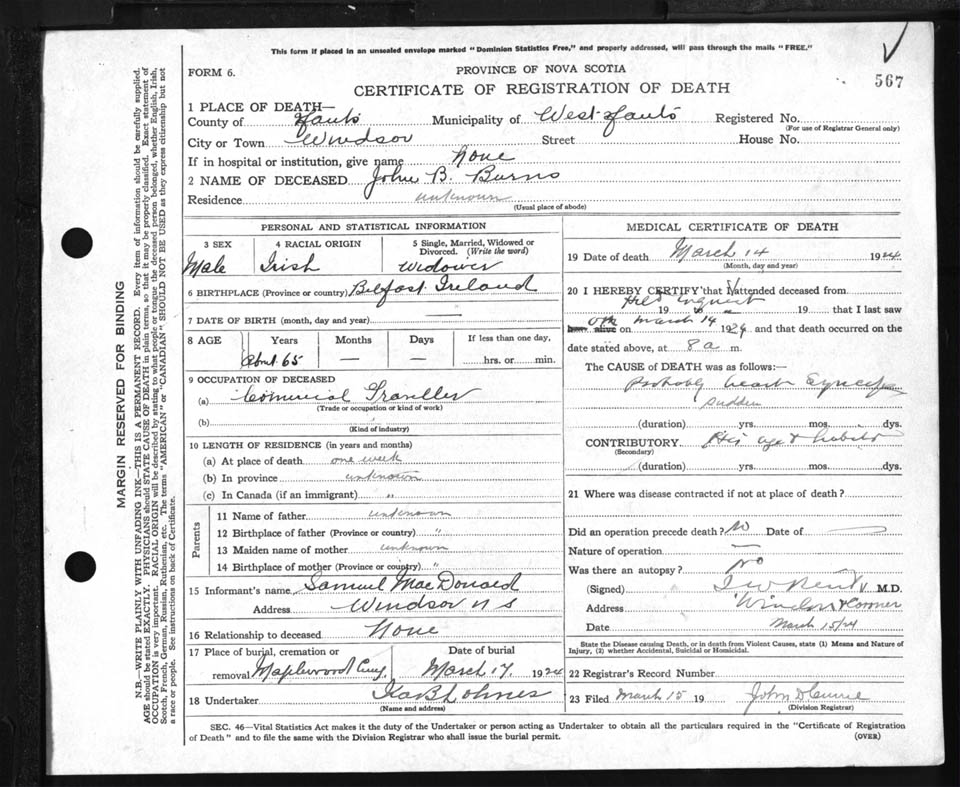 This form if placed in an unsealed envelope marked "Dominion Statistics Free," and properly addressed, will pass through the mails "FREE."
567
FORM 6.
PROVINCE OF NOVA SCOTIA
CERTIFICATE OF REGISTRATION OF DEATH
MARGIN RESERVED FOR BINDING
N.B.—WRITE PLAINLY WITH UNFADING INK—THIS IS A PERMANENT RECORD. Every item of information should be carefully supplied.
AGE should be stated EXACTLY. PHYSICIANS should STATE CAUSE OF DEATH in plain terms, so that it may be properly classified. Exact statement of
OCCUPATION is very important. RACIAL ORIGIN will be described by stating to what people or tongue the deceased person belonged, whether English, Irish,
Scotch, French, German, Russian, Ruthenian, etc. The terms "AMERICAN" or "CANADIAN" SHOULD NOT BE USED as they express citizenship but not
a race or people. See instructions on back of Certificate.
1 PLACE OF DEATH—
County of Hants Municipality of West Hants Registered No.
(For use of Registrar General only)
City or Town Windsor Street House No.
If in hospital or institution, give name None
2 NAME OF DECEASED John B. Burns
Residence unknown
(Usual place of abode)
PERSONAL AND STATISTICAL INFORMATION
3 SEX 4 RACIAL ORIGIN 5 Single, Married, Widowed or Divorced. (Write the word)
Male Irish Widower
6 BIRTHPLACE (Province or country) Belfast Ireland
7 DATE OF BIRTH (month, day and year) —
8 AGE Years Months Days If less than one day,
About 65 — — hrs. or min.
9 OCCUPATION OF DECEASED
(a) Commercial Traveller
(Trade or occupation or kind of work)
(b)
(Kind of industry)
10 LENGTH OF RESIDENCE (in years and months)
(a) At place of death one week
(b) In province unknown
(c) In Canada (if an immigrant) "
Parents
11 Name of father unknown
12 Birthplace of father (Province or country) "
13 Maiden name of mother unknown
14 Birthplace of mother (Province or country) "
15 Informant's name Samuel MacDonald
Address Windsor N S
16 Relationship to deceased None
17 Place of burial, cremation or removal Maplewood Cemy. Date of burial March 17, 1924
18 Undertaker
(Name and address)
MEDICAL CERTIFICATE OF DEATH
19 Date of death March 14 1924
(Month, day and year)
20 I HEREBY CERTIFY that I attended deceased from
Held Inquest
19 to 19 that I last saw
on March 14 1924 and that death occurred on the
date stated above, at 8 a m.
The CAUSE of DEATH was as follows:—
Probably heart
sudden
(duration) yrs. mos. dys.
CONTRIBUTORY His age & habits
(Secondary)
(duration) yrs. mos. dys.
21 Where was disease contracted if not at place of death?
Did an operation precede death? No Date of —
Nature of operation —
Was there an autopsy? No
(Signed) M.D.
Address Windsor Coroner
Date March 15/24
State the Disease causing Death, or in death from Violent Causes, state (1) Means and Nature of
Injury, (2) whether Accidental, Suicidal or Homicidal.
22 Registrar's Record Number
23 Filed March 15 19 John
(Division Registrar)
SEC. 46—Vital Statistics Act makes it the duty of the Undertaker or person acting as Undertaker to obtain all the particulars required in the "Certificate of Registration
of Death" and to file the same with the Division Registrar who shall issue the burial permit.
(OVER)